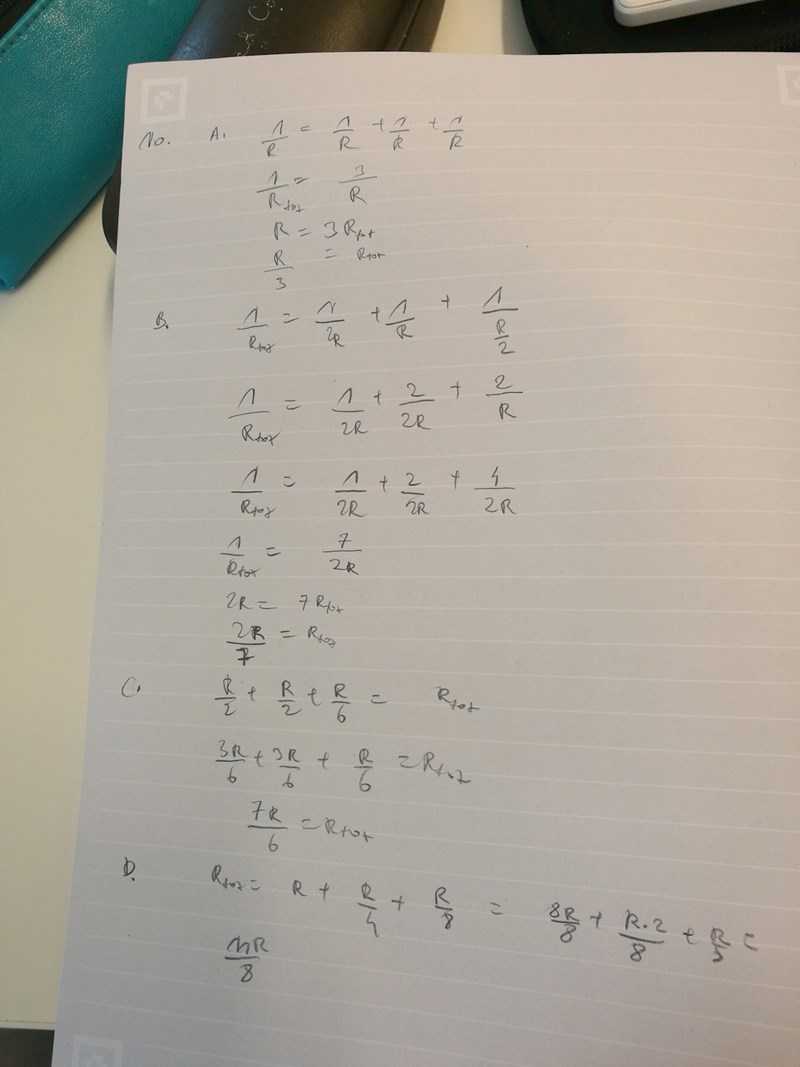 No. A. 1/R = 1/R + 1/R + 1/R
1/Rtot = 3/R
R = 3 Rtot
R/3 = Rtot
B. 1/Rtot = 1/2R + 1/R + 1/(R/2)
1/Rtot = 1/2R + 2/2R + 2/R
1/Rtot = 1/2R + 2/2R + 4/2R
1/Rtot = 7/2R
2R = 7 Rtot
2R/7 = Rtot
C. R/2 + R/2 + R/6 = Rtot
3R/6 + 3R/6 + R/6 = Rtot
7R/6 = Rtot
D. Rtot = R + R/4 + R/8 = 8R/8 + R·2/8 + R/8 =
11R/8